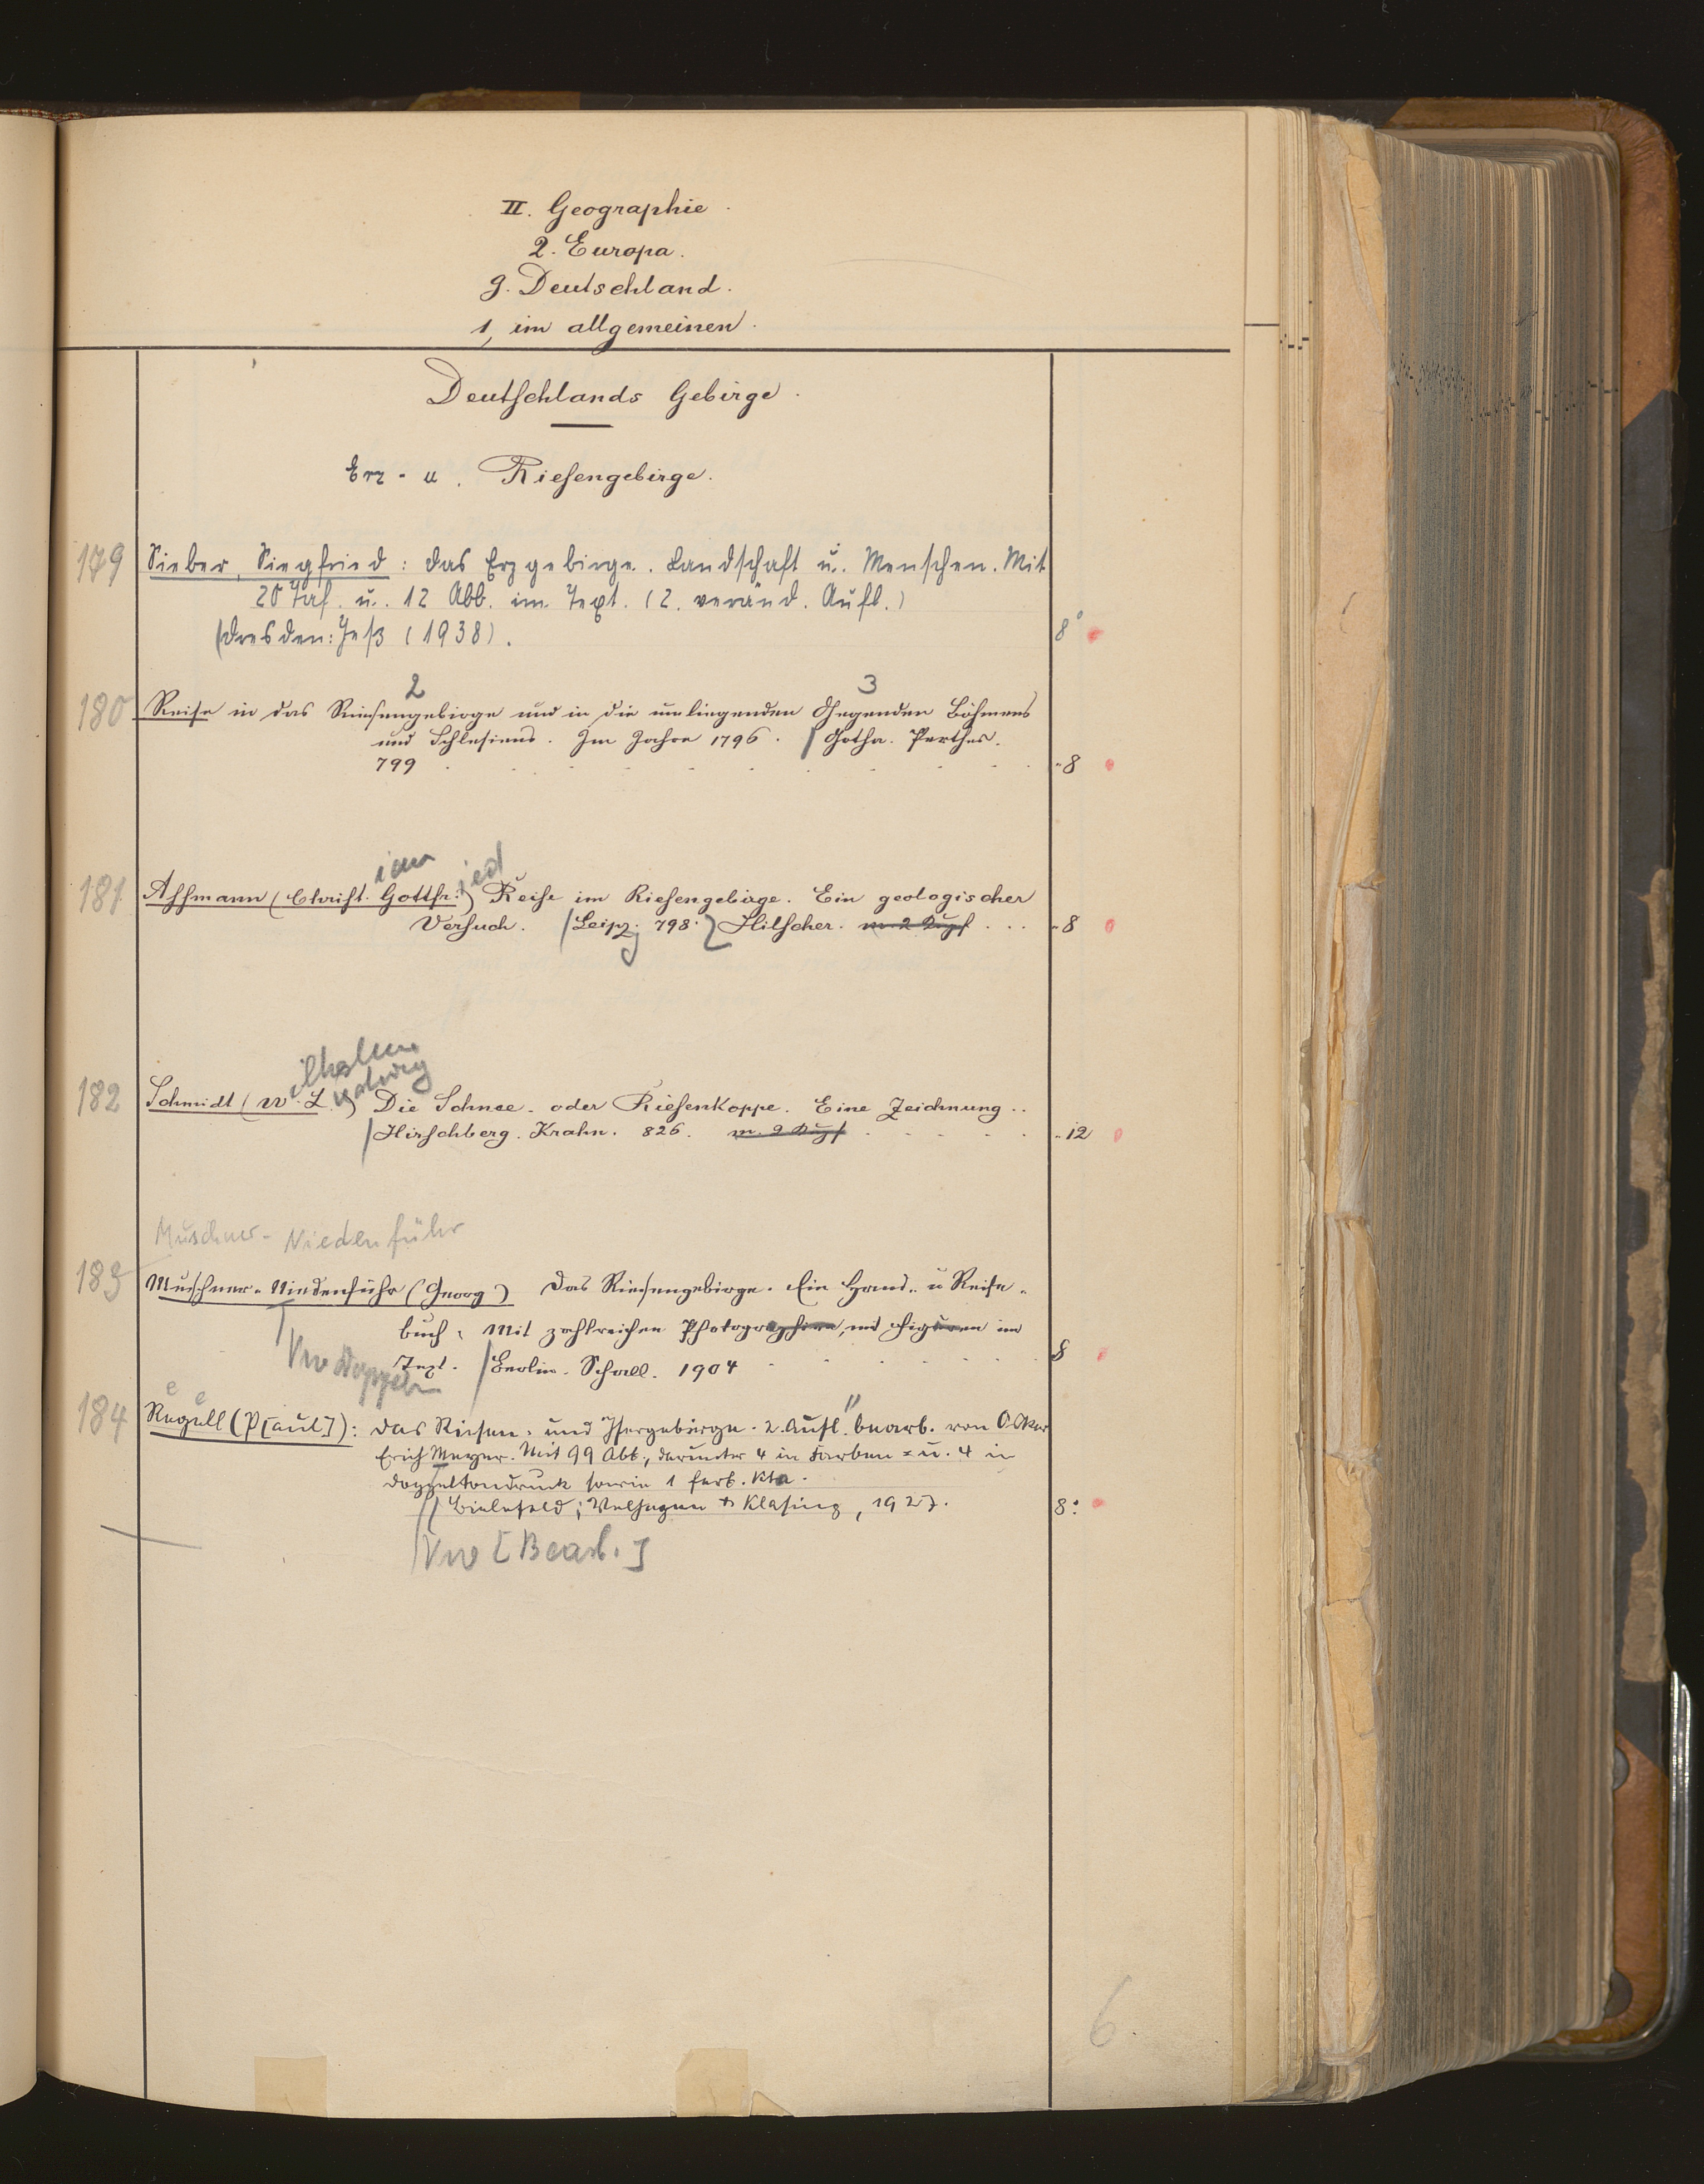 II. Geographie.
2. Europa.
g. Deutschland.
1, im allgemeinen.
Deutschlands Gebirge.
Erz- u. Riesengebirge.
179 Sieber, Siegfried: Das Erzgebirge. Landschaft u. Menschen. Mit
20 Taf. u. 12 Abb. im Text. (2. veränd. Aufl.)
Dresden: Jeß (1938). 8°
2 3
180 Reise in das Riesengebirge und in die umliegenden Gegenden Böhmens
und Schlesiens. Im Jahre 1796. Gotha. Perthes.
799 . . . . . . . . . . "8
ian ied
181 Assmann (Christ. Gottfr.) Reise im Riesengebirge. Ein geologischer
Versuch. Leipz. 798. Hilscher. m. 2 Kupf . . . "8
ilhelm
udwig
182 Schmidt (W. L.) Die Schnee- oder Riesenkoppe. Eine Zeichnung..
Hirschberg. Krahn. 826. m. 2 Kupf . . . . . "12
Muschner-Niedenführ
183 Muschner-Niedenführ (Georg) Das Riesengebirge. Ein Hand- u Reise-
buch. Mit zahlreichen Photographien, und Figuren im
Text. Berlin. Schall. 1904 . . . . . . 8
Vw Doppeln
e e
184 Regell (P[aul]): Das Riesen- und Isergebirge. 2. Aufl. bearb. von Oskar
Erich Meyer. Mit 99 Abb., darunter 4 in Farben- u. 4 in
Doppeltondruck sowie 1 farb. Kte.
Bielefeld; Velhagen & Klasing, 1927. 8°.
Vw [Bearb.]
6.